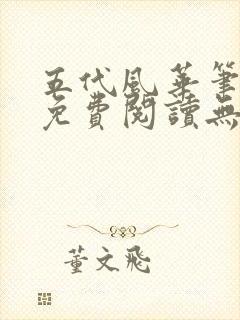 五代風華筆
免費閱讀無
董文飛